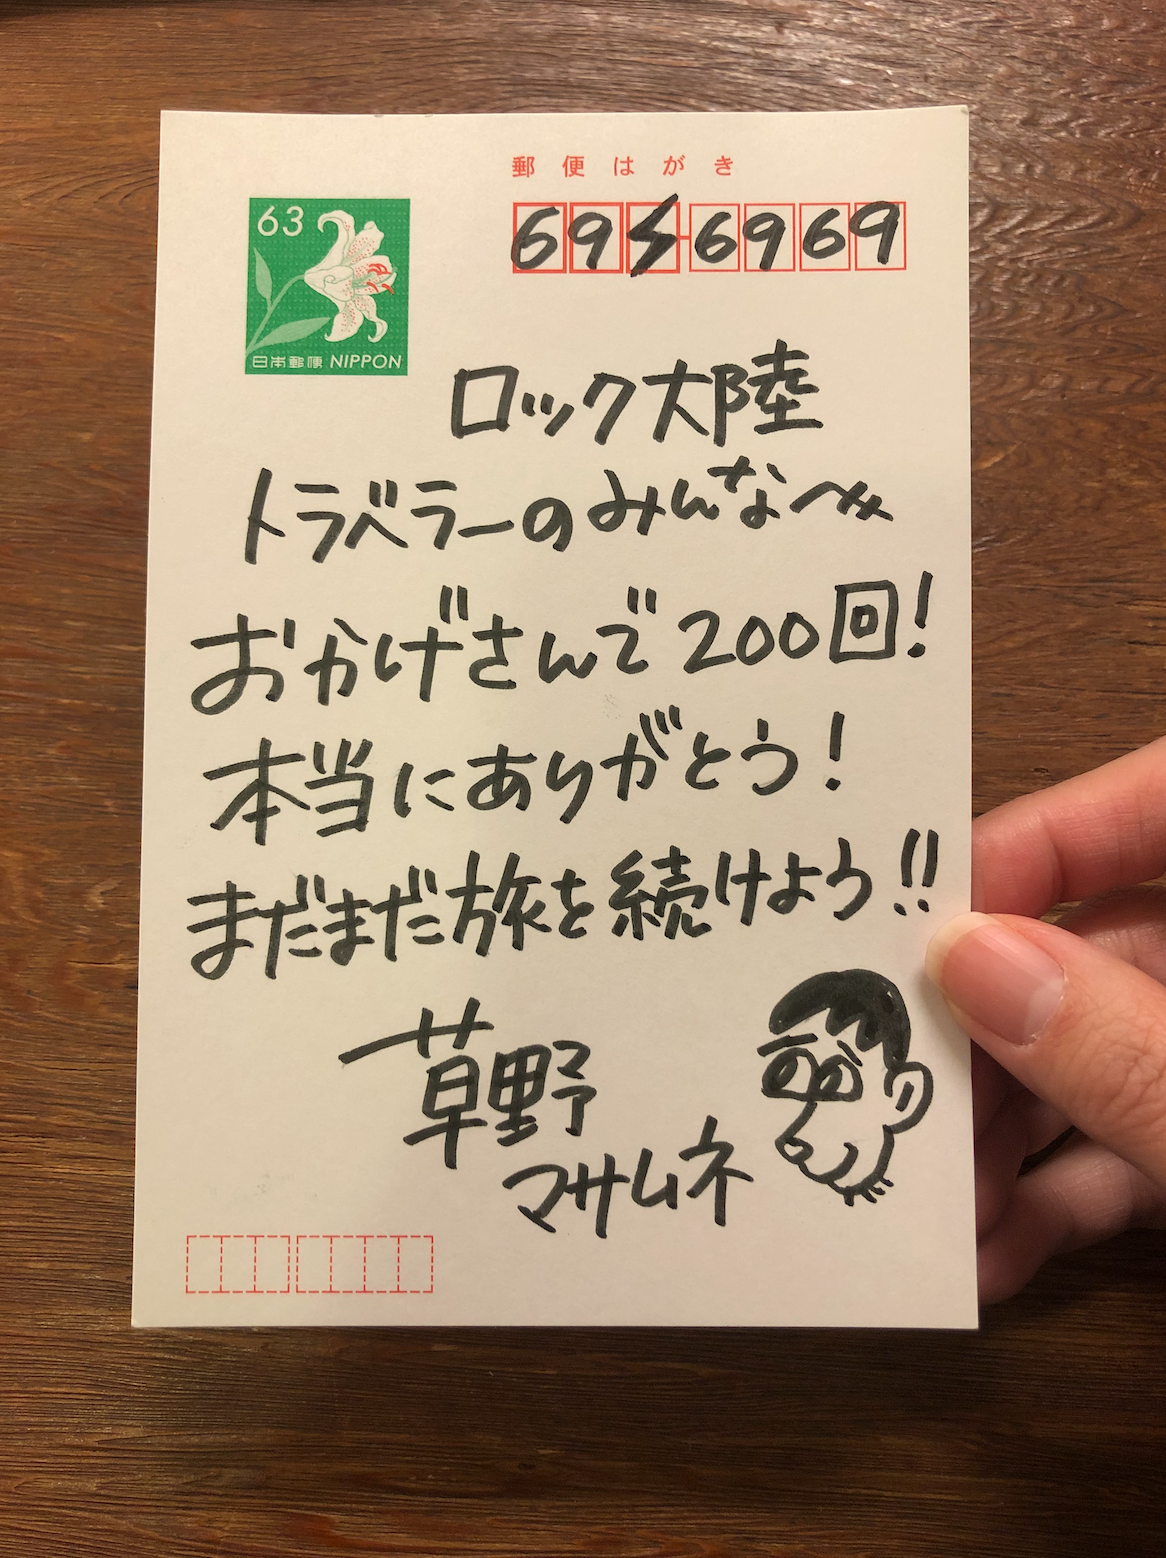 郵便はがき
63
69⚡6969
日本郵便 NIPPON
ロック大陸
トラベラーのみんなへ
おかげさんで200回!
本当にありがとう!
まだまだ旅を続けよう!!
草野
マサムネ